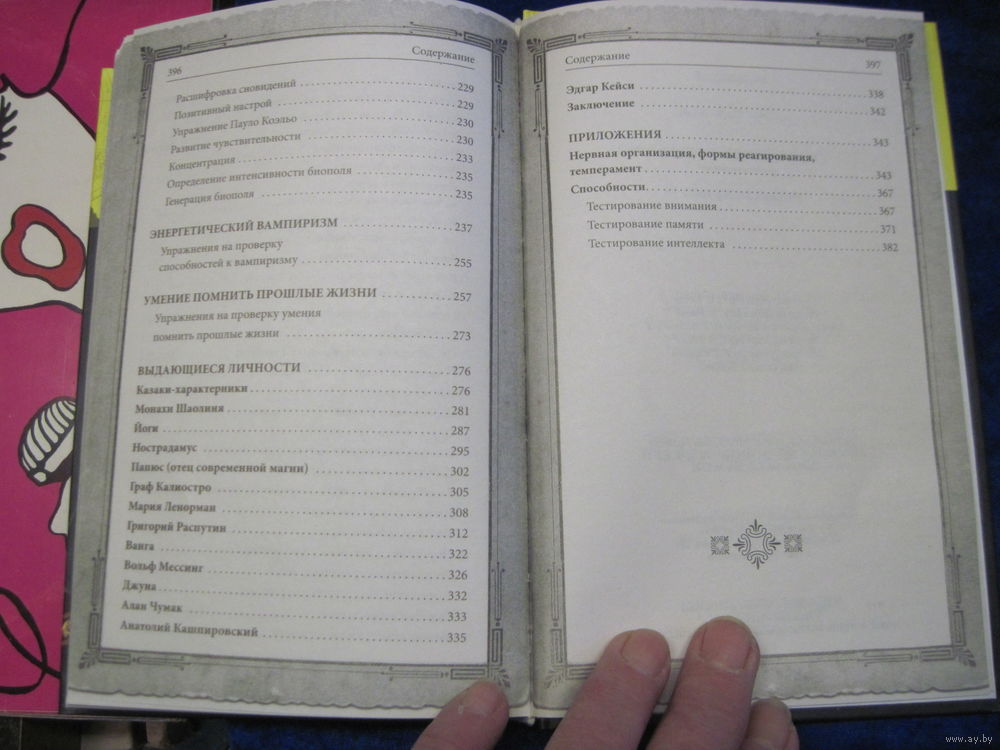 396 Содержание
Расшифровка сновидений 229
Позитивный настрой 229
Упражнение Пауло Коэльо 230
Развитие чувствительности 230
Концентрация 233
Определение интенсивности биополя 235
Генерация биополя 235
ЭНЕРГЕТИЧЕСКИЙ ВАМПИРИЗМ 237
Упражнения на проверку
способностей к вампиризму 255
УМЕНИЕ ПОМНИТЬ ПРОШЛЫЕ ЖИЗНИ 257
Упражнения на проверку умения
помнить прошлые жизни 273
ВЫДАЮЩИЕСЯ ЛИЧНОСТИ 276
Казаки-характерники 276
Монахи Шаолиня 281
Йоги 287
Нострадамус 295
Папюс (отец современной магии) 302
Граф Калиостро 305
Мария Ленорман 308
Григорий Распутин 312
Ванга 322
Вольф Мессинг 326
Джуна 332
Алан Чумак 333
Анатолий Кашпировский 335
Содержание 397
Эдгар Кейси 338
Заключение 342
ПРИЛОЖЕНИЯ 343
Нервная организация, формы реагирования,
темперамент 343
Способности 367
Тестирование внимания 367
Тестирование памяти 371
Тестирование интеллекта 382
www.ay.by